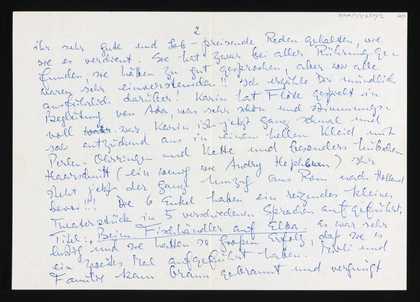 2
ihr sehr gute und lob-preisende Reden gehalten, wie
sie es verdient. Sie hat zwar bei aller Rührung ge-
funden, sie hätten zu gut gesprochen, aber wir alle
waren sehr einverstanden!! Ich erzähle Dir mündlich
ausführlich darüber! Karin hat Flöte gespielt in
Begleitung von Ada, was sehr schön und stimmungs-
voll war. Karin ist jetzt ganz schmal und
sah entzückend aus in einem hellen Kleid mit
Perlen-Ohrringen und Kette und besonders hübschem
Haarschnitt (ein wenig wie Audry Hephburn) Ihr
steht jetzt der ganze Umzug aus Rom nach Holland
bevor!!! Die 6 Enkel haben ein reizendes kleines
Theaterstück in 5 verschiedenen Sprachen aufgeführt.
Titel: "Beim Fischhändler auf Elba. Es war sehr
lustig und sie hatten so großen Erfolg, daß sie's
ein zweites Mal aufgeführt haben.
Familie kam braun gebrannt und vergnügt